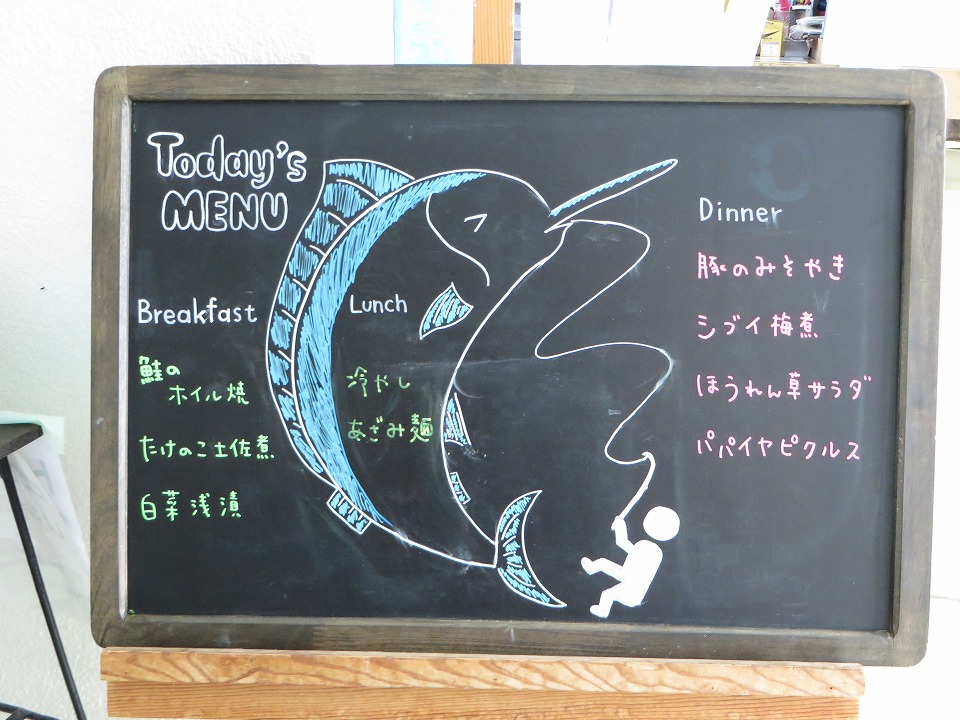 Today's
MENU
Breakfast
鮭の
ホイル焼
たけのこ土佐煮
白菜浅漬
Lunch
冷やし
あざみ麺
Dinner
豚のみそやき
シブイ梅煮
ほうれん草サラダ
パパイヤピクルス